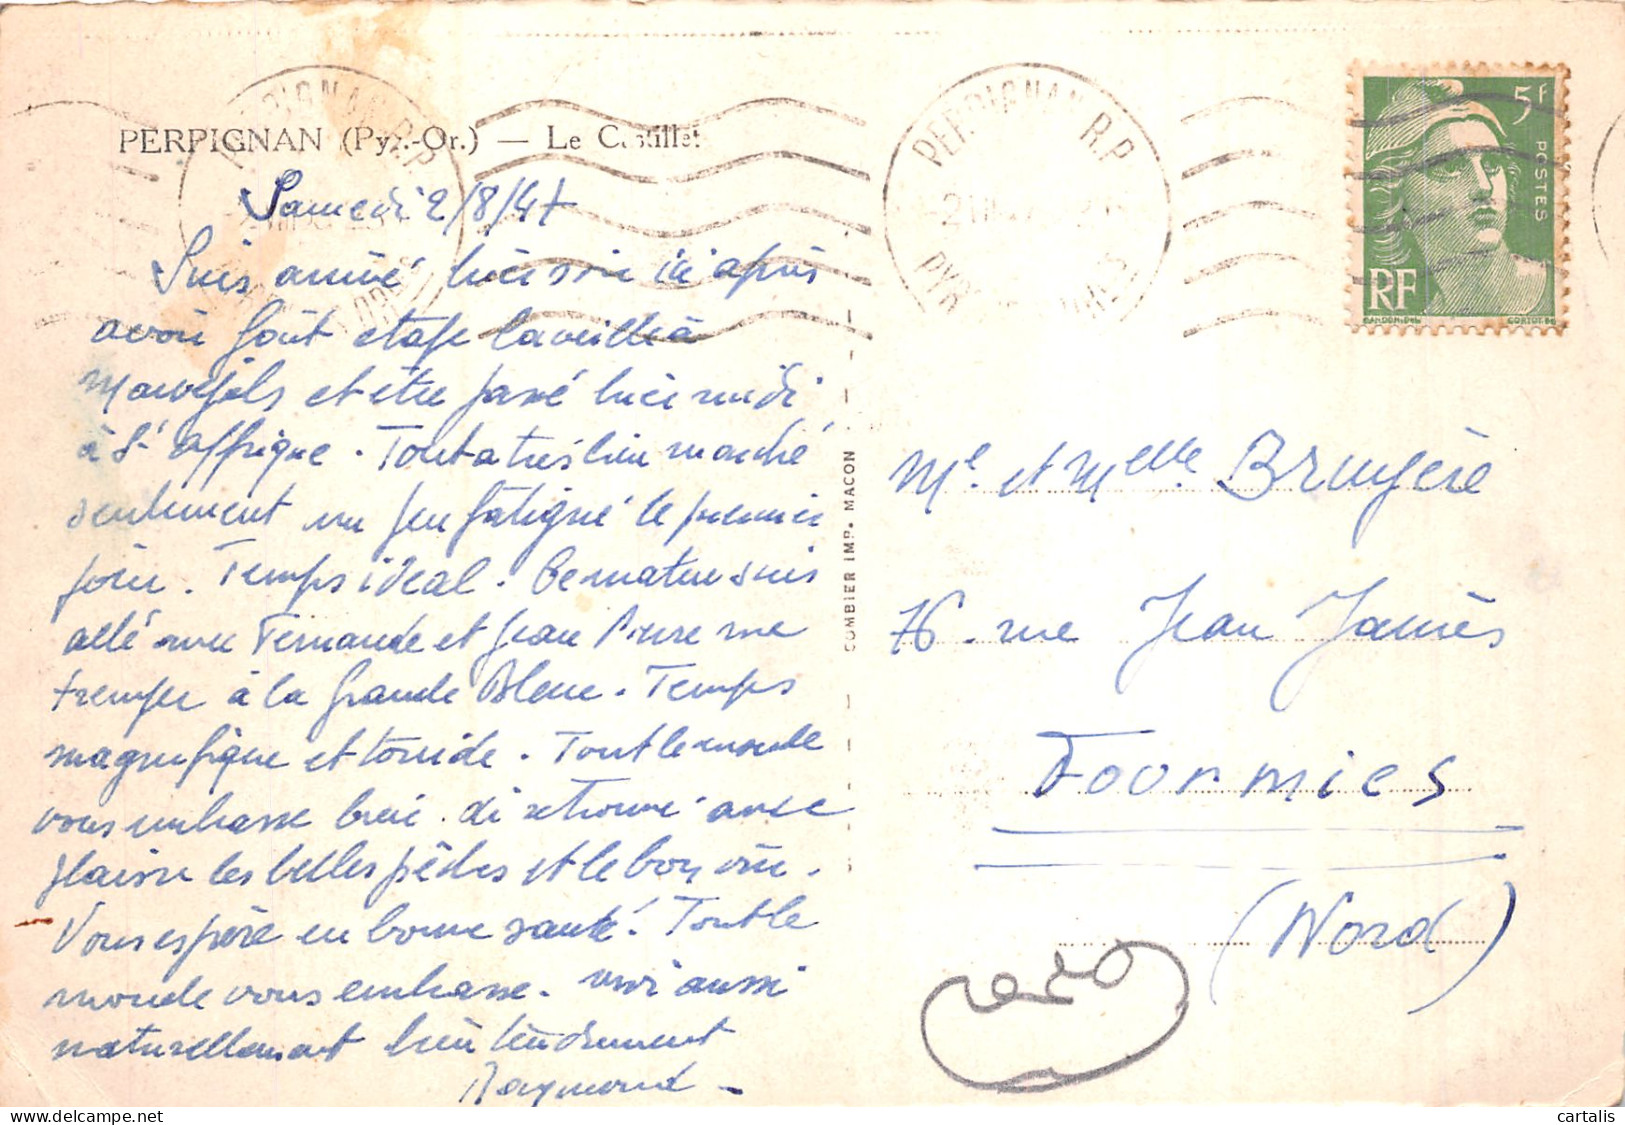 PERPIGNAN (Pyr.-Or.) — Le Castillet
PERPIGNAN R.P.
Samedi 2/8/47
Suis arrivé hier soir ici après
avoir fait étape la veille à
Marvejols et être passé hier midi
à St Affrique. Tout a très bien marché
seulement un peu fatigué le premier
jour. Temps idéal. Ce matin suis
allé avec Fernande et Jean Pierre me
tremper à la Grande Bleue. Temps
magnifique et torride. Tout le monde
vous embrasse bien. Ai retrouvé avec
plaisir les belles pêches et le bon vin.
Vous espère en bonne santé. Tout le
monde vous embrasse. Moi aussi
naturellement bien tendrement
Raymond
COMBIER IMP. MACON
PERPIGNAN R.P.
5f
POSTES
RF
GANDON DEL
CORTOT
Me et Melle Bruyère
76 rue Jean Jaurès
Fourmies
(Nord)
cartalis